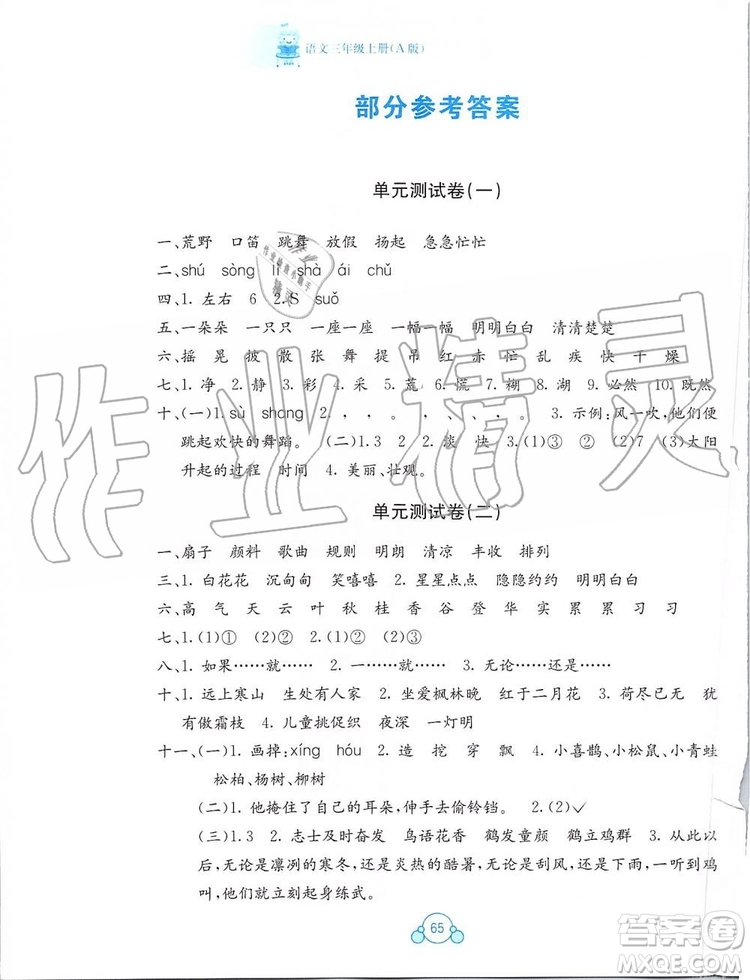 语文三年级上册(A版)
部分参考答案
单元测试卷(一)
一、荒野 口笛 跳舞 放假 扬起 急急忙忙
二、shú sòng lǐ shà ái chǔ
四、1. 左右 6 2.S suǒ
五、一朵朵 一只只 一座一座 一幅一幅 明明白白 清清楚楚
六、摇 晃 披 散 张 舞 提 吊 红 赤 忙 乱 疾 快 干 燥
七、1. 净 2. 静 3. 彩 4. 采 5. 荒 6. 慌 7. 糊 8. 湖 9. 必然 10. 既然
十、(一)1. sù shang 2. , , 。 , 、 , 。 3. 示例:风一吹,他们便
跳起欢快的舞蹈。 (二)1.3 2. 淡 快 3.(1)① ② (2)7 (3)太阳
升起的过程 时间 4. 美丽、壮观。
单元测试卷(二)
一、扇子 颜料 歌曲 规则 明朗 清凉 丰收 排列
三、1. 白花花 沉甸甸 笑嘻嘻 2. 星星点点 隐隐约约 明明白白
六、高 气 天 云 叶 秋 桂 香 谷 登 华 实 累 累 习 习
七、1.(1)① (2)② 2.(1)② (2)①
八、1. 如果……就…… 2. 一……就…… 3. 无论……还是……
十、1. 远上寒山 生处有人家 2. 坐爱枫林晚 红于二月花 3. 荷尽已无 犹
有傲霜枝 4. 儿童挑促织 夜深 一灯明
十一、(一)1. 画掉:xíng hóu 2. 造 挖 穿 飘 3. 小喜鹊、小松鼠、小青蛙
松柏、杨树、柳树
(二)1. 他掩住了自己的耳朵,伸手去偷铃铛。 2.(2)✓
(三)1.3 2. 志士及时奋发 鸟语花香 鹤发童颜 鹤立鸡群 3. 从此以
后,无论是凛冽的寒冬,还是炎热的酷暑,无论是刮风,还是下雨,一听到鸡
叫,他们就立刻起身练武。
65
作业精灵
答案圈
MXQE.COM